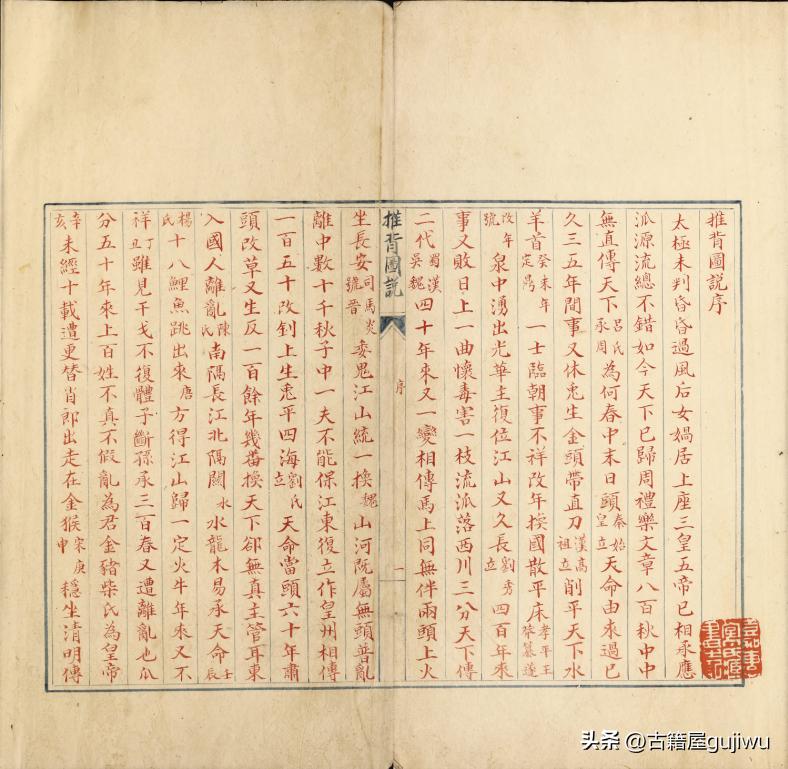 推背圖說序
太極未判昏昏過風后女媧居上座三皇五帝已相承應
派源流總不錯如今天下已歸周禮樂文章八百秋中中
無直傳天下呂氏承周為何春中末日頭秦始皇立天命由來過已
久三五年間事又休兎生金頭帶直刀漢高祖立削平天下水
羊首癸未年定禺一士臨朝事不祥改年按國散平床孝平王莽篡遂
改年號泉中湧出光華主復位江山又久長劉秀立四百年來
事又敗日上一曲懷毒害一枝流派落西川三分天下傳
二代蜀漢吳魏四十年來又一變相傳馬上同無伴兩頭上火
推背圖說
序
一
坐長安司馬炎號晉委鬼江山統一換魏山河既屬無頭晉亂
離中數十千秋子中一夫不能保江東復立作皇州相傳
一百五十改釗上生兎平四海劉氏立天命當頭六十年肅
頭改草又生反一百餘年幾番換天下卻無真主管耳東
入國人離亂陳氏南隅長江北隔關水水龍木易承天命壬辰
楊氏十八鯉魚跳出來唐方得江山歸一定火牛年來又不
祥丁丑雖見干戈不復體子斷孫承三百春又遭離亂也瓜
分五十年來上百姓不真不假亂為君金豬柴氏為皇帝
辛亥未經十載遭更替肖郎出走在金猴宋庚申穩坐清明傳
头条 @古籍屋gujiwu